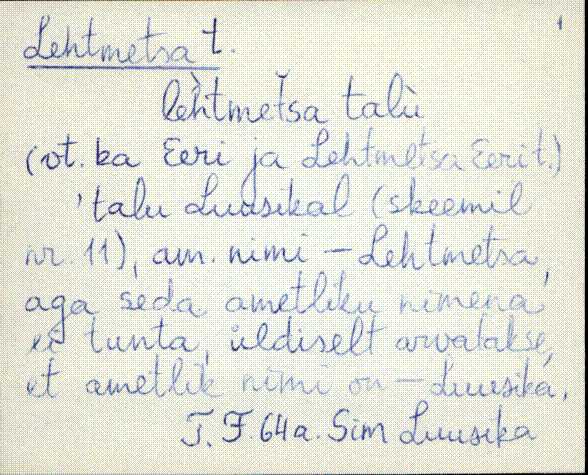 1
Lehtmetsa t.
lèhtmet̆sa talù
(vt. ka Eeri ja Lehtmetsa Eeri t.)
'talu Luusikal (skeemil
nr. 11), am. nimi – Lehtmetsa,
aga seda ametliku nimena
ei tunta, üldiselt arvatakse,
et ametlik nimi on – Luusika.
T. F. 64a. Sim Luusika